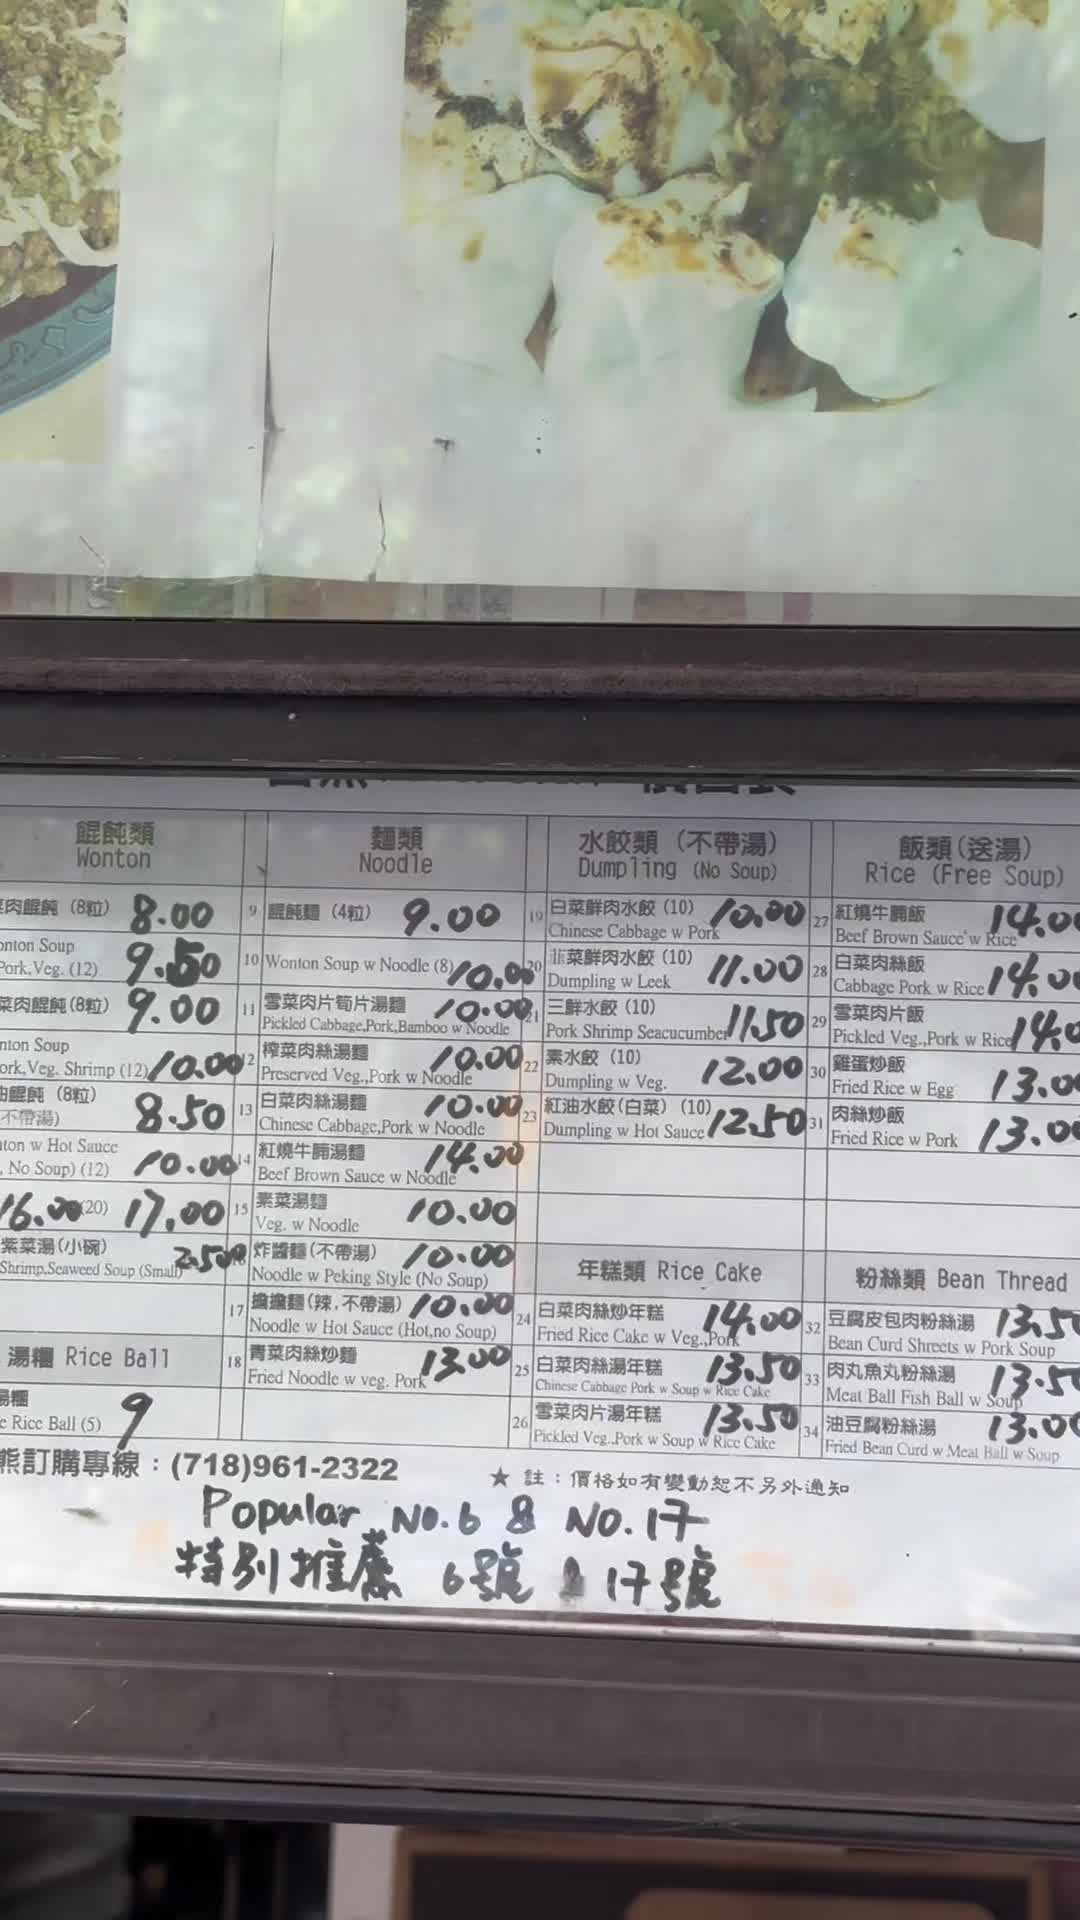 餛飩類
Wonton
菜肉餛飩 (8粒) 8.00
onton Soup
Pork,Veg. (12) 9.50
菜肉餛飩(8粒) 9.00
nton Soup
ork,Veg. Shrimp (12) 10.00
油餛飩 (8粒)
不帶湯) 8.50
ton w Hot Sauce
, No Soup) (12) 10.00
16.00 (20) 17.00
紫菜湯(小碗)
Shrimp,Seaweed Soup (Small) 2.50
湯糰 Rice Ball
湯糰
e Rice Ball (5) 9
麵類
Noodle
9 餛飩麵 (4粒) 9.00
10 Wonton Soup w Noodle (8) 10.00
11 雪菜肉片筍片湯麵 10.00
Pickled Cabbage,Pork,Bamboo w Noodle
12 榨菜肉絲湯麵 10.00
Preserved Veg.,Pork w Noodle
13 白菜肉絲湯麵 10.00
Chinese Cabbage,Pork w Noodle
14 紅燒牛腩湯麵 14.00
Beef Brown Sauce w Noodle
15 素菜湯麵 10.00
Veg. w Noodle
16 炸醬麵(不帶湯) 10.00
Noodle w Peking Style (No Soup)
17 擔擔麵(辣,不帶湯) 10.00
Noodle w Hot Sauce (Hot,no Soup)
18 青菜肉絲炒麵 13.00
Fried Noodle w veg. Pork
水餃類 (不帶湯)
Dumpling (No Soup)
19 白菜鮮肉水餃 (10) 10.00
Chinese Cabbage w Pork
20 韭菜鮮肉水餃 (10) 11.00
Dumpling w Leek
21 三鮮水餃 (10) 11.50
Pork Shrimp Seacucumber
22 素水餃 (10) 12.00
Dumpling w Veg.
23 紅油水餃(白菜) (10) 12.50
Dumpling w Hot Sauce
年糕類 Rice Cake
24 白菜肉絲炒年糕 14.00
Fried Rice Cake w Veg.,Pork
25 白菜肉絲湯年糕 13.50
Chinese Cabbage Pork w Soup w Rice Cake
26 雪菜肉片湯年糕 13.50
Pickled Veg.,Pork w Soup w Rice Cake
飯類(送湯)
Rice (Free Soup)
27 紅燒牛腩飯 14.00
Beef Brown Sauce w Rice
28 白菜肉絲飯 14.00
Cabbage Pork w Rice
29 雪菜肉片飯 14.0
Pickled Veg.,Pork w Rice
30 雞蛋炒飯 13.00
Fried Rice w Egg
31 肉絲炒飯 13.00
Fried Rice w Pork
粉絲類 Bean Thread
32 豆腐皮包肉粉絲湯 13.50
Bean Curd Shreets w Pork Soup
33 肉丸魚丸粉絲湯 13.50
Meat Ball Fish Ball w Soup
34 油豆腐粉絲湯 13.00
Fried Bean Curd w Meat Ball w Soup
熊訂購專線：(718)961-2322
★ 註：價格如有變動恕不另外通知
Popular No.6 & No.17
特別推薦 6號 & 17號